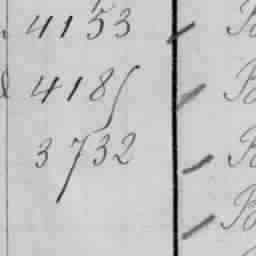 4153
4185
3732